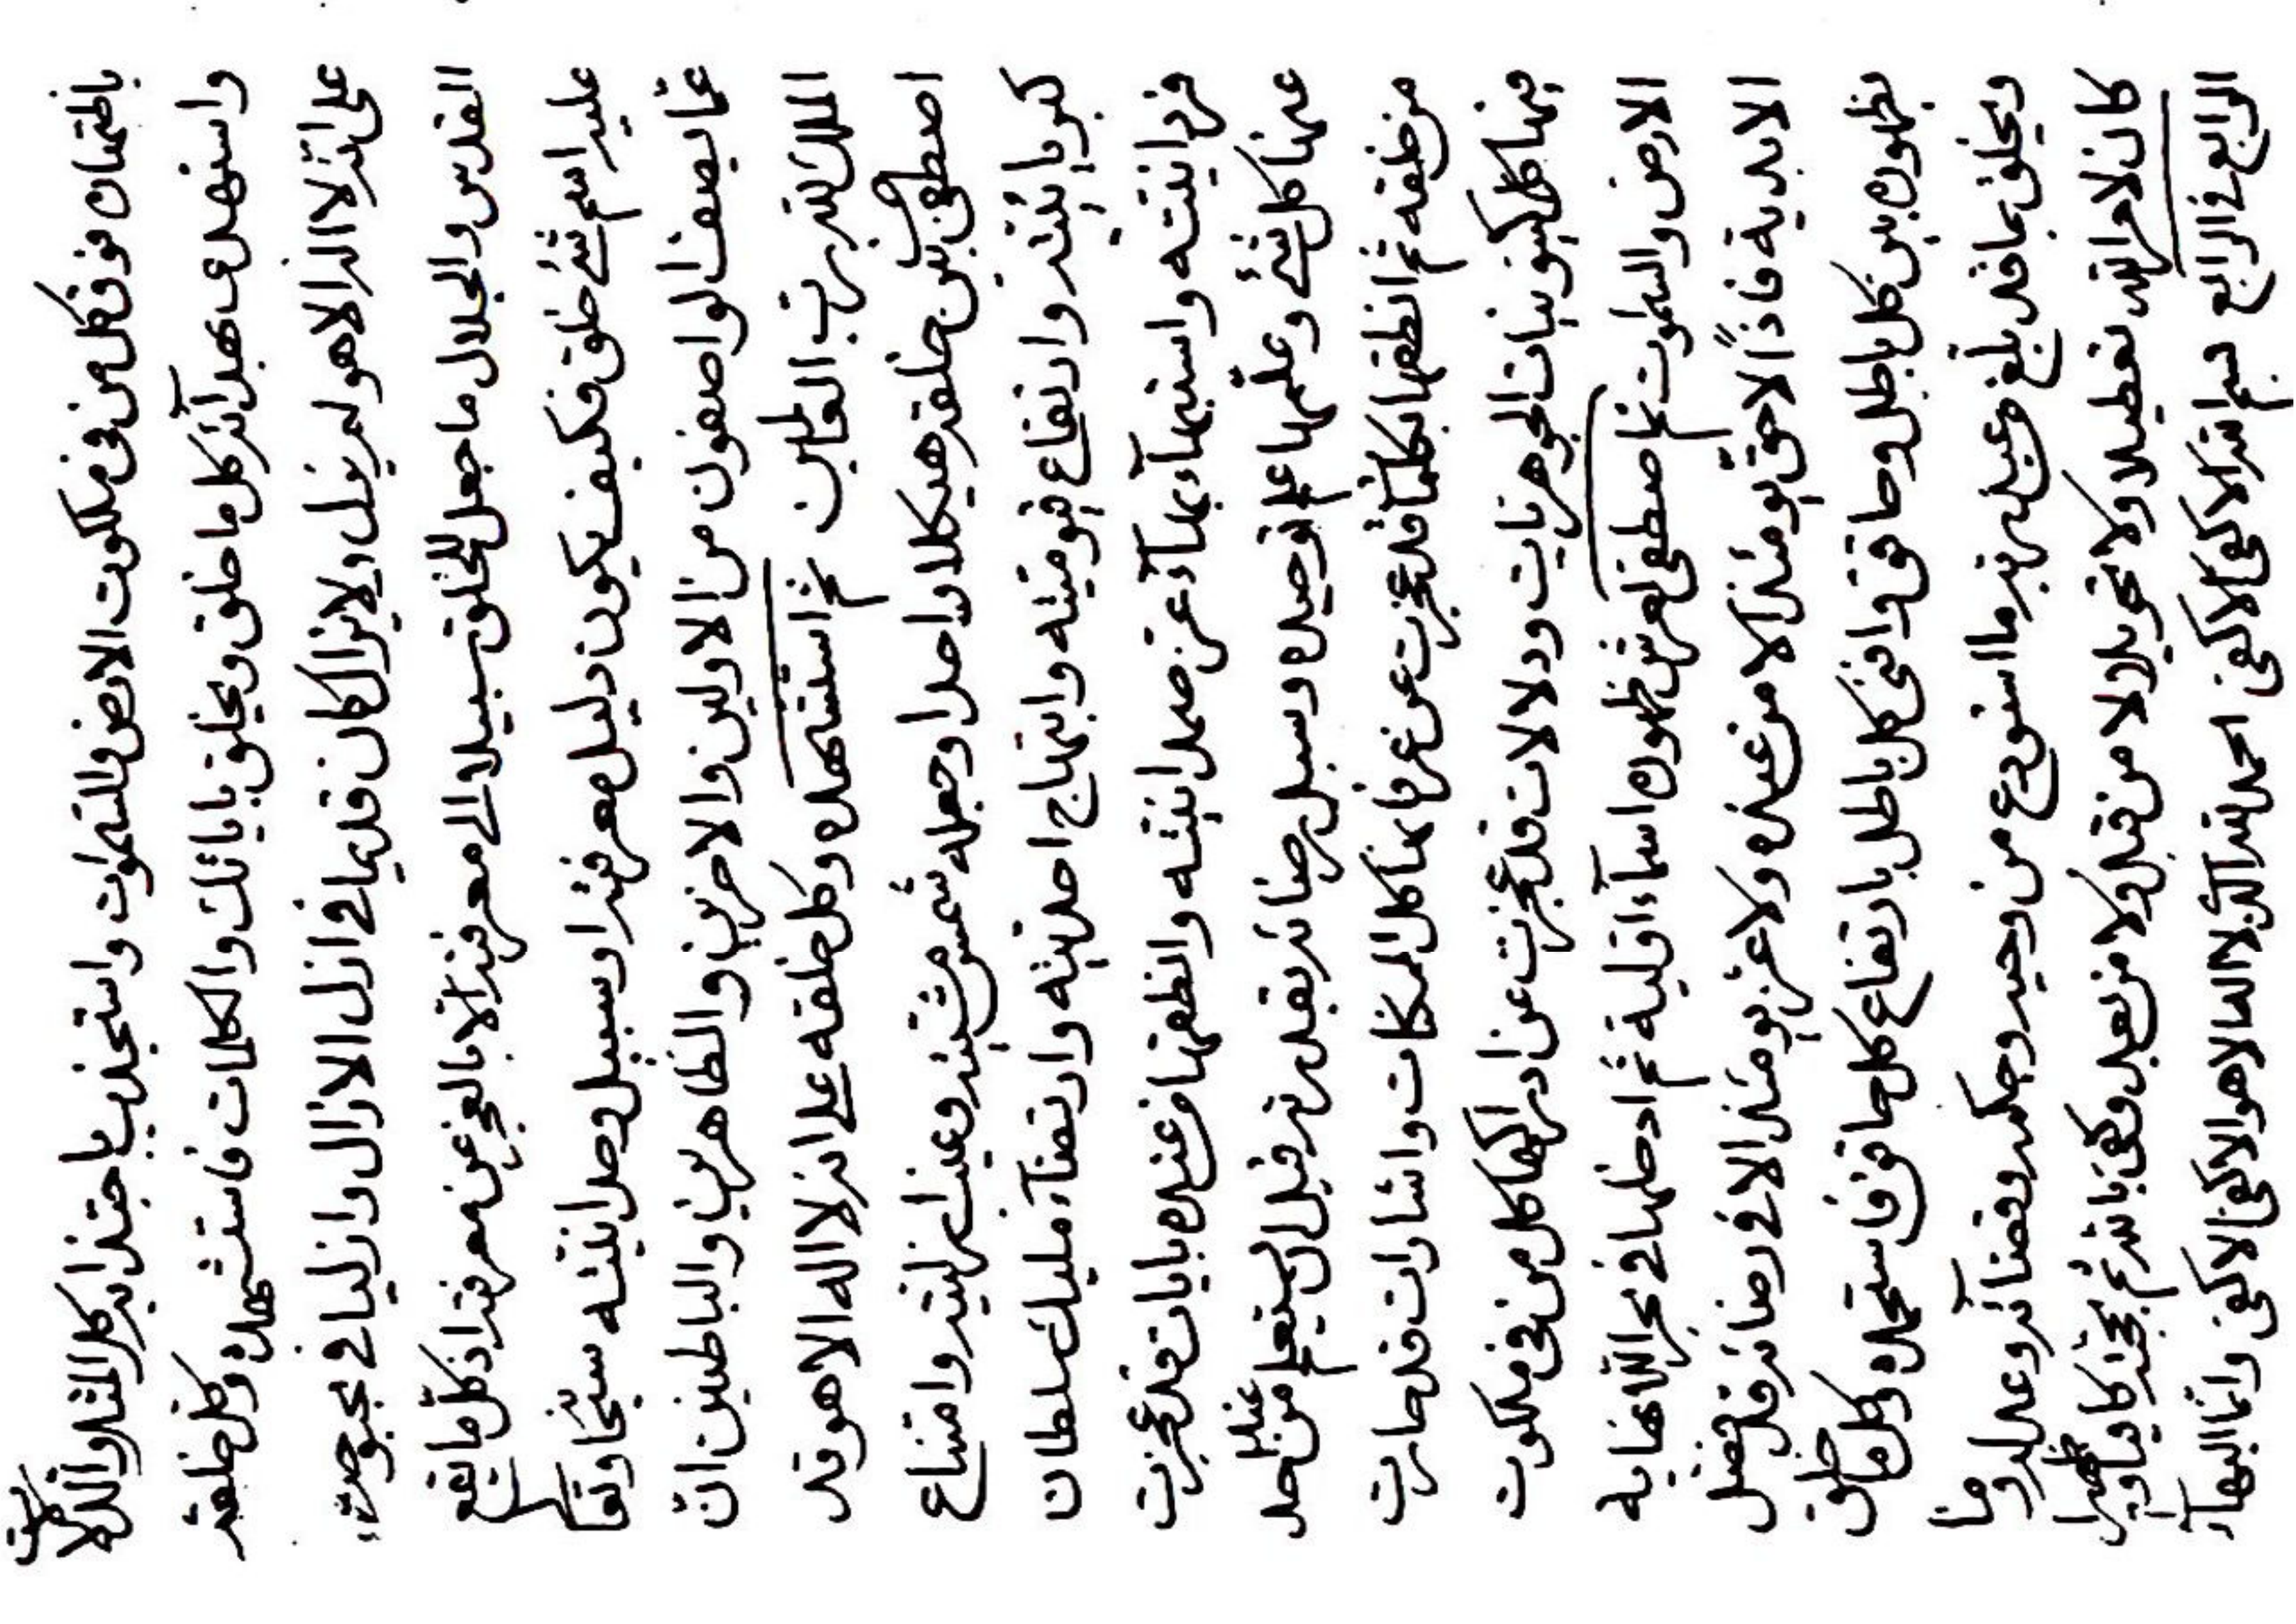 باظتهاره فوق كل من في ملكوت الارض والسموات واستجذب باجتذابه كل الذرات
واستهدى بهدائه كل ما خلق ويخلق بايات والكلمات فاستشهده وكل خلقه
على انه لا اله الا هو لم يزل ولا يزال كان قديما في ازل الازال وازليا في بحبوحة
القدس والجلال ما جعل للخلق سبيلا الى معرفته الا بالعجز عن معرفته اذ كل ما يقع
عليه اسم شئ خلق فكيف يكون دليل معرفته او سبيل وحدانيته سبحانه وتعالى
عما يصف الواصفون من الاولين والاخرين والظاهرين والباطنين ان
الملك لله رب العالمين ثم استشهده وكل خلقه على انه لا اله الا هو قد
اصطفى من بين خلقه هيكلا واحدا وجعله شمس مشيته وعين ازليته وامتناع
كبريائيته وارتفاع قيوميته وابتهاج احديته وارتضاء مليك سلطان
فردانيته واستبهاء بهاء عز صمدانيته وانطقها من عنده بايات قد عجزت
عنها كل شئ وعلمها علم توحيده وسبل رضائه بقدرته قبل ان يتعلم من عند احد
من خلقه ثم انطقها بكلمات قد عجزت عن عرفانها كل الممكنات واشارات قد حارت
فيها كل كينونيات الجوهريات ودلالات قد عجزت عن ادراكها كل من في ملكوت
الارض والسموات ثم اصطفى لعرش ظهوره اسماء اولية ثم ادخلها في بحر اللانهاية
الابدية فاذا لا حق يومئذ الا من عنده ولا عز يومئذ الا في رضائه قد فصل
بظهوره بين كل باطل وحاقق وافنى كل باطل بارتفاع كل حاقق فاستحمده وكل ما خلق
ويخلق بما قد بلغ عبده ما استودع من وحيه وحكمه وقضائه وعدله وما
كان لامر الله تعطيلا ولا تحويلا لا من قبل ولا من بعد وكفى بالله ثم بحجته كافيا وظهيرا
الرابع في الرابع بسم الله الاكفى الاكفى الحمد لله الذي لا اله الا هو الاكفى الاكفى وانما البهاء